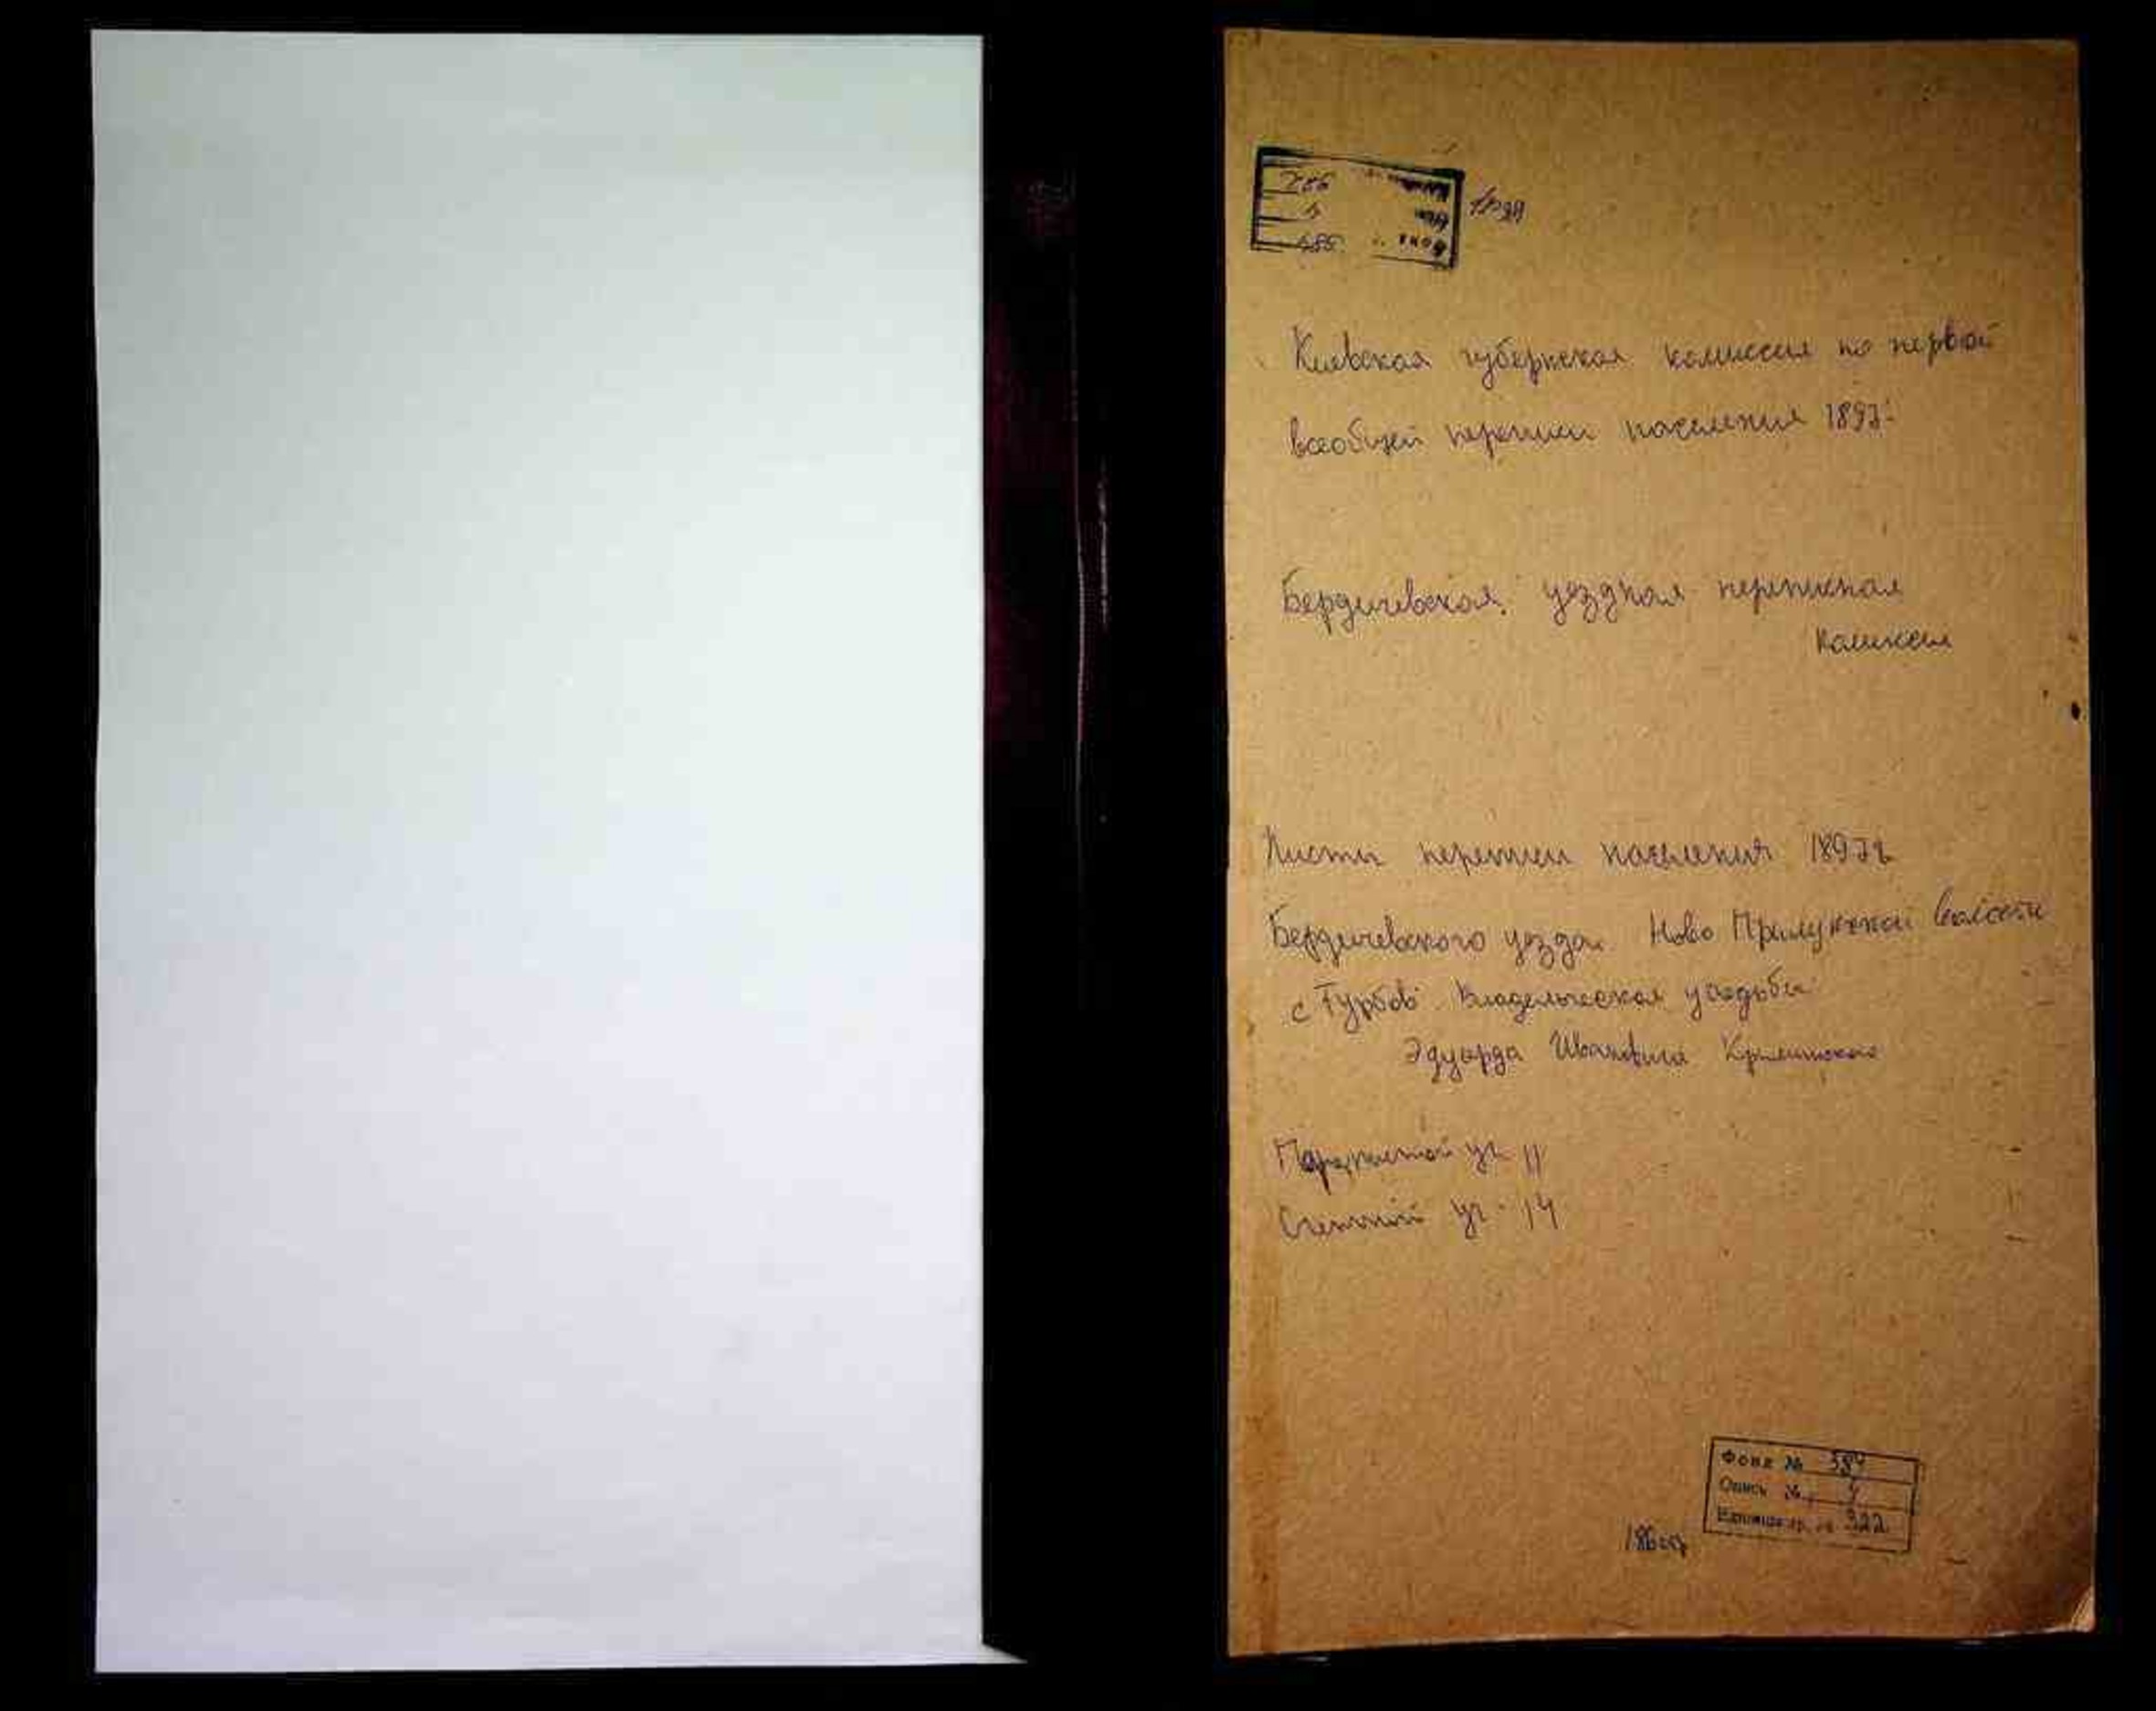 Киевская губернская комиссия по первой
всеобщей переписи населения 1897г.
Бердичевская уездная переписная
комиссия
Листы переписи населения 1897г
Бердичевского уезда Ново Прилукской волости
с Турбов Владельческая усадьба
Эдуарда Ивановича
Переписной уч 11
Счетный уч. 14
Фонд №
Опись № 4
Единица хр. № 322